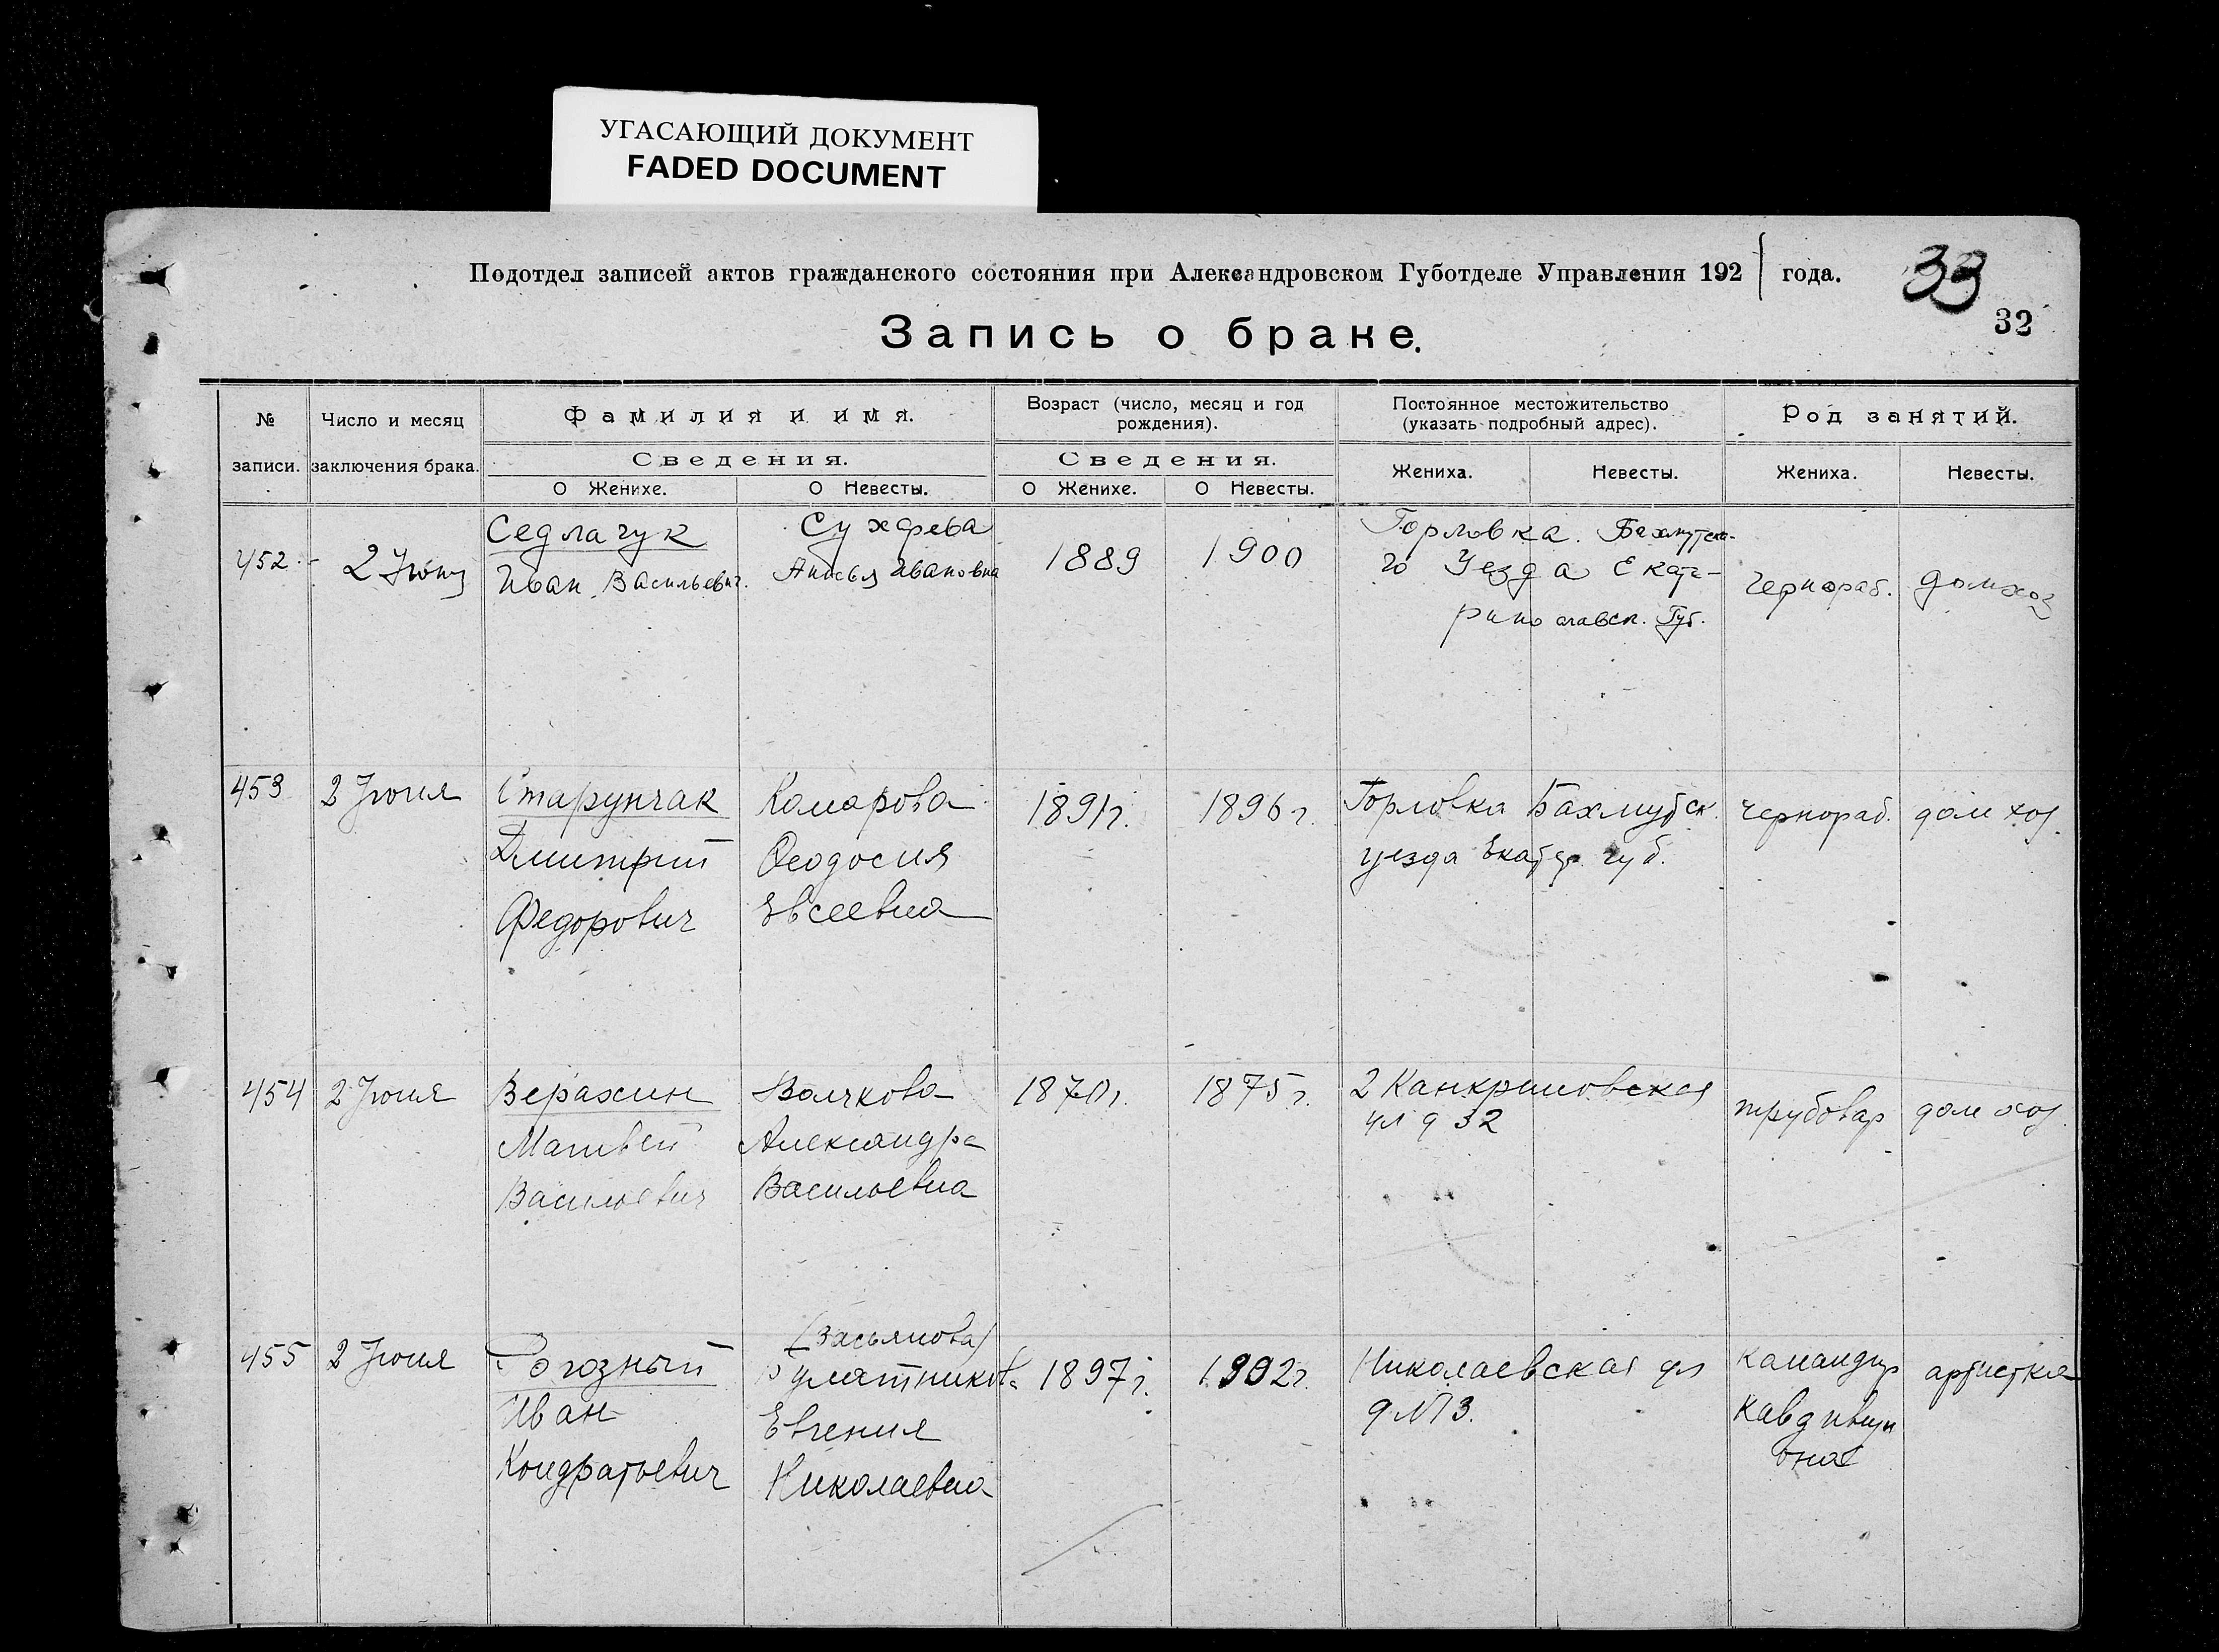 УГАСАЮЩИЙ ДОКУМЕНТ
FADED DOCUMENT
Подотдел записей актов гражданского состояния при Александровском Губотделе Управления 1921 года.
33
32
Запись о браке.
№ записи.
Число и месяц заключения брака.
Фамилия и имя.
Сведения.
О Женихе.
О Невесты.
Возраст (число, месяц и год рождения).
Сведения.
О Женихе.
О Невесты.
Постоянное местожительство (указать подробный адрес).
Жениха.
Невесты.
Род занятий.
Жениха.
Невесты.
452
2 Июня
Седлачук
Иван Васильевич.
Анисья Ивановна
1889
1900
Горловка. Бахмутска-
го Уезда Екате-
ринославск. Губ.
чернораб.
домхоз
453
2 Июня
Старунчак
Дмитрий
Федорович
Комарова
Феодосия
Евсеевна
1891г.
1896г.
Горловка Бахмутск.
уезда Екатер. губ.
чернораб.
дом хоз.
454
2 Июня
Верахин
Матвей
Васильевич
Волчкова
Александра
Васильевна
1870г.
1875г.
2 Канкриновская
ул д 32
трубовар
дом хоз.
455
2 Июня
Иван
Кондратьевич
(Засьянова)
Евгения
Николаевна
1897г.
1902г.
Николаевская ул
д №13.
Камандир
Кавдивизи
она
артистка